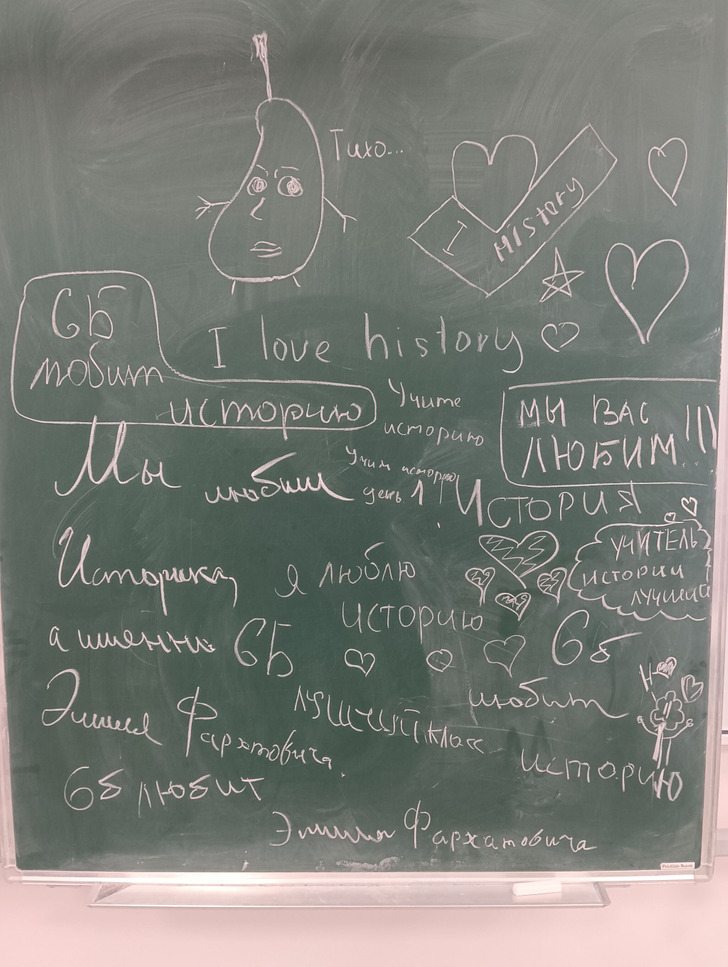 Тихо...
I HISTORY
6Б
любит
историю
I love history
Учите
историю
МЫ ВАС
ЛЮБИМ!!!
Мы любим
Учим историю
день 1
ИСТОРИЯ
Историка,
я люблю
историю
УЧИТЕЛЬ
истории
лучший
а именно 6Б
6б
любит
историю
Эмиля Фархатовича
лучший класс
6б любит
Эмиля Фархатовича